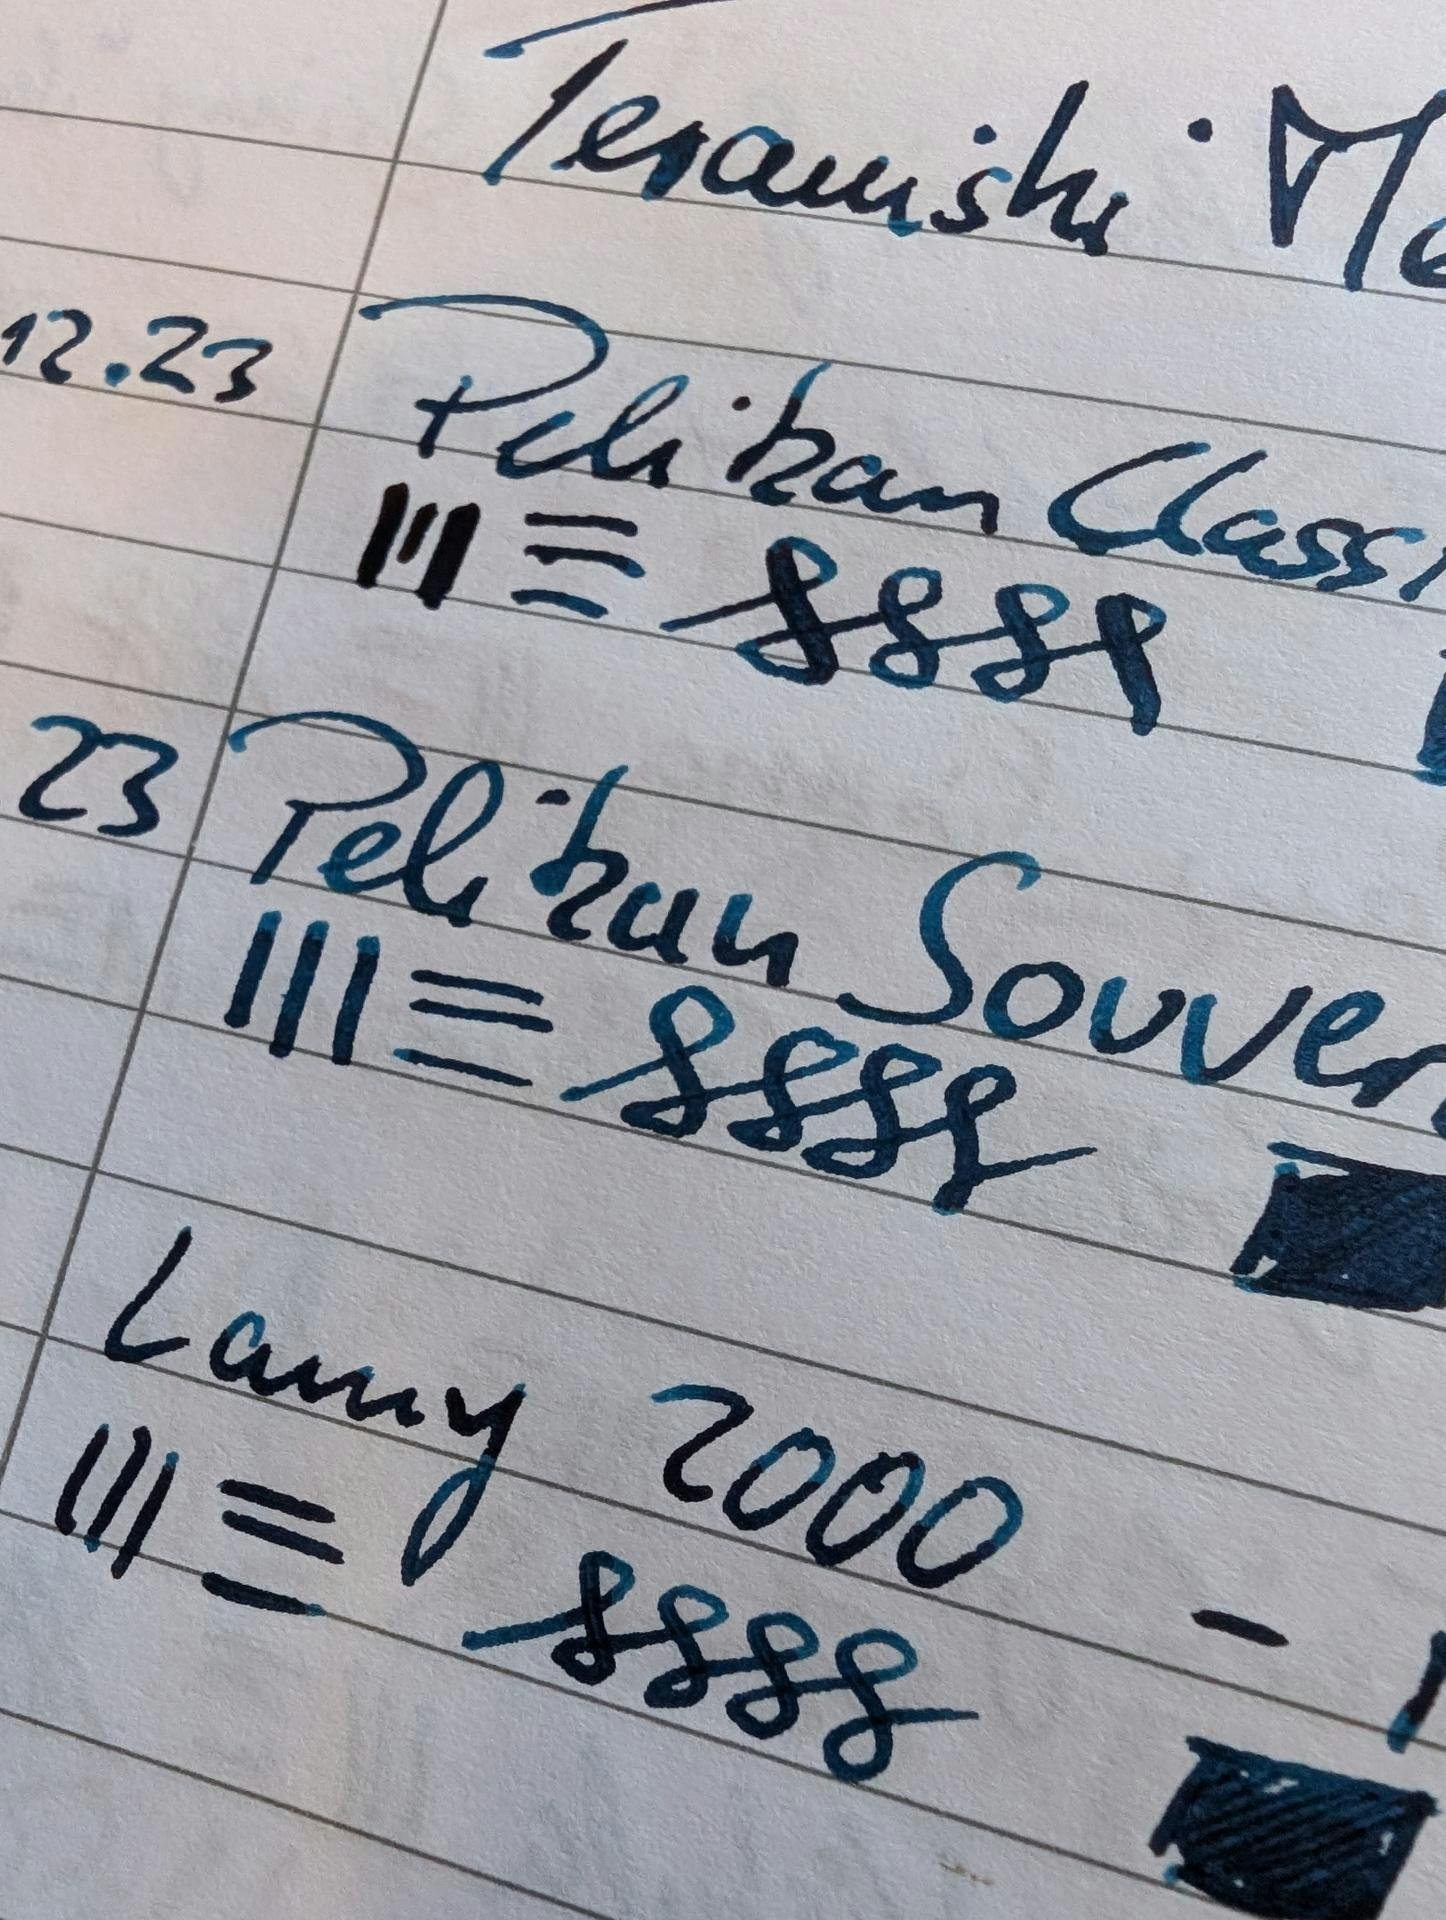 Teranishi Mo
12.23 Pelikan Classi
23 Pelikan Souver
Lamy 2000 -